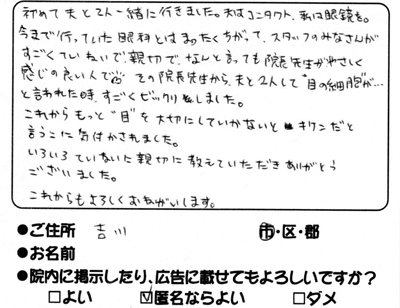 初めて夫と2人一緒に行きました。夫はコンタクト、私は眼鏡を。
今まで行っていた眼科とはまったくちがって、スタッフのみなさんが
すごくていねいで、親切で、なんと言っても院長先生がやさしく
感じの良い人で その院長先生から、夫と2人して"目の細胞"が…
と言われた時、すごくビックリしました。
これからもっと"目"を大切にしていかないとキケンだと
言うことに気付かされました。
いろいろていねいに親切に教えていただきありがとう
ございました。
これからもよろしくおねがいします。
●ご住所 吉川 市・区・郡
●お名前
●院内に掲示したり、広告に載せてもよろしいですか?
□よい ☑匿名ならよい □ダメ